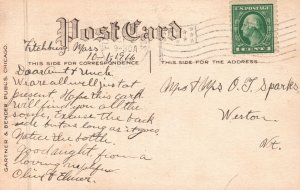 Post Card
Fitchburg Mass
10-1, 1916
THIS SIDE FOR CORRESPONDENCE
THIS SIDE FOR THE ADDRESS
Dear Aunt & Uncle
We are all well just at
present. Hope this card
will find you all the
same, Excuse the back
side but as long as it goes
Notice the bottle.
Goodnight, from a
loving nephew
Mr & Mrs O. T. Sparks
Weston
Vt.
GARTNER & BENDER, PUBLS. CHICAGO.
1 CENT 1